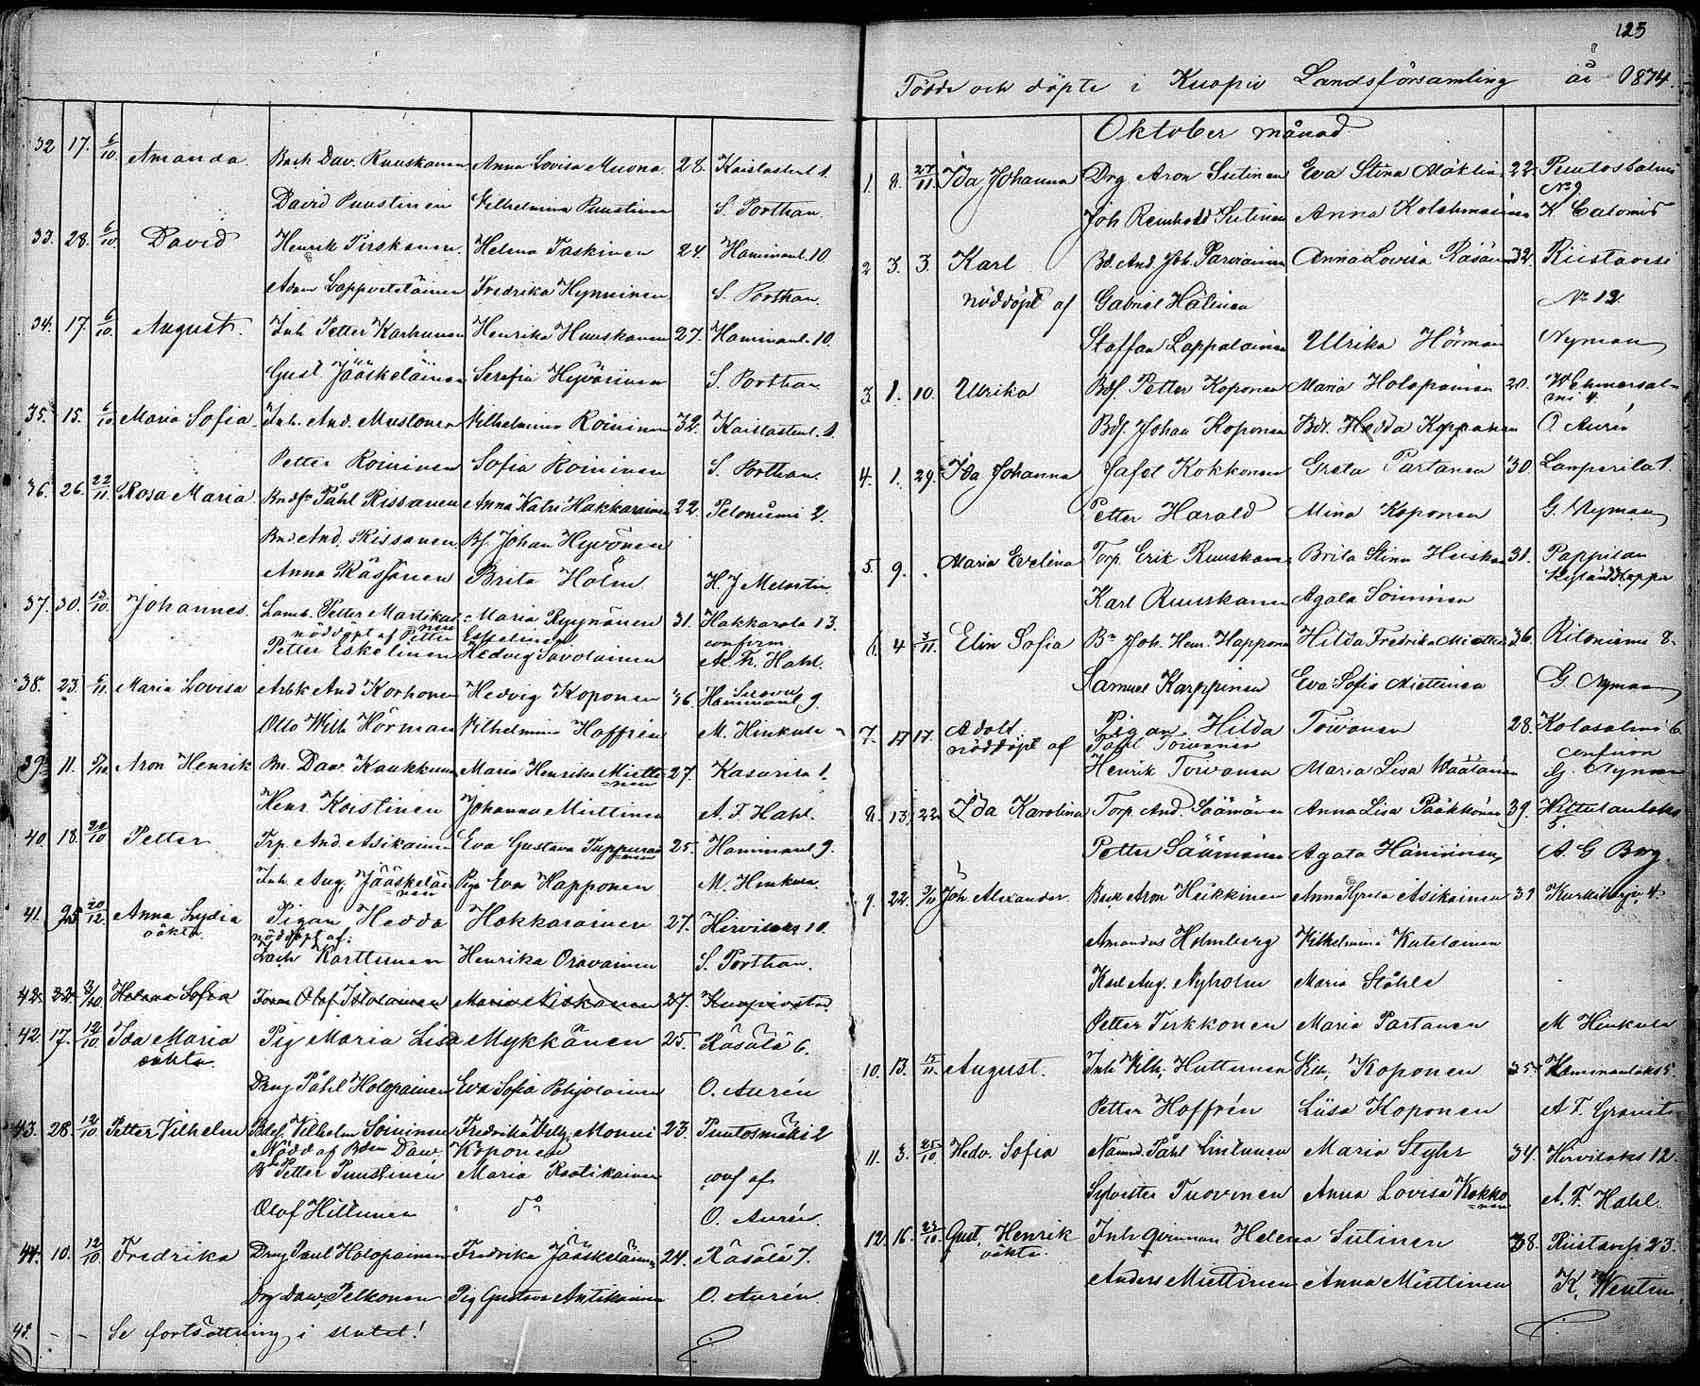 32 17. 6/10. Amanda. Bach Dav. Ruuskanen Anna Lovisa Muona. 28. Kaislastenl 1.
David Puustinen Vilhelmina Puustinen S. Porthan.
33. 28. 6/10. David Henrik Pirskanen. Helena Taskinen 24. Haminanl. 10
Adam Lappveteläinen Fredrika Hynninen S. Porthan.
34. 17. 6/10. August. Inh Petter Karhunen Henrika Huuskonen 27. Haminanl. 10.
Gust Jääskeläinen Serafia Hyvärinen S. Porthan.
35. 15. 6/10 Maria Sofia. Inh. And. Mustonen Vilhelmina Roininen 32. Kaislastenl. 1.
Petter Roininen Sofia Roininen S. Porthan.
36. 26. 22/11. Rosa Maria. Påhl Rissanen Anna Katri Hakkarainen 22. Peloniemi 2.
And. Rissanen Bf. Johan Hyvönen
Anna Rässänen Brita Holm. H. J Melartin
37. 30. 13/10. Johannes. Lamb. Petter Martikainen Maria Ryynänen 31. Hakkarala 13.
nöddöpt af Petter Eskelinen confirm
Petter Eskelinen Hedvig Savolainen A. F. Hahl.
38. 23. 6/11. Maria Lovisa Arbk And Korhonen Hedvig Koponen 36. Haminanl 9.
Otto Wilh Hörman Vilhelmina Hoffrén M. Hinkula
39. 11. Aron Henrik Bn. Dav. Kaukkunen Maria Henrika Miettinen 27. Kasurila 1.
Henr Koistinen Johanna Miettinen A. F. Hahl.
40. 18. 20/10 Petter Trp. And. Asikainen Eva Gustava Tuppurainen 25. Haminanl 9.
Inh. Aug. Jääskeläinen Piga Eva Happonen M. Hinkula.
41. 25 20/12. Anna Lydia Pigan Hedda Hakkarainen 27. Hirvilaks 10.
oäkta. nöddöpt af:
Zach Karttunen Henrika Oravainen S. Porthan.
42. 22. Helena Sofia Olof Maria Niskanen 27. Kuopio stad.
42. 17. 12/10 Ida Maria Pig Maria Lisa Mykkänen 25. Räsälä 6.
oäkta.
Dreng Påhl Holopainen Eva Sofia Pohjolainen O. Aurén
43. 28. 12/10 Petter Vilhelm Vilhelm Soininen Fredrika Vilh. Monni 23. Puutosmäki 2
Nödd af Bden Dav. Koponen
Bn Petter Puustinen Maria Raatikainen conf af
Olof Hiltunen " do O. Aurén.
44. 10. 12/10. Fredrika Dreng Paul Holopainen Fredrika Jääskeläinen 24. Räsälä 7.
Drg Dav. Pelkonen Pig Gustava Antikainen O. Aurén.
45. - - Se fortsättning i slutet!
125
Födde och döpte i Kuopio Landsförsamling år 1874.
Oktober månad
1. 8. 27/11. Ida Johanna Drg. Aron Sutinen Eva Stina Mäklin 22. Puutossalmi
No 9.
Joh Reinhold Sutinen Anna Kolehmainen K. Calonius
2 3. 3. Karl Bd. And. Joh. Parviainen Anna Lovisa Räsänen 32. Riistavesi
nöddöpt af Gabriel Hälinen No 12.
Staffan Lappalainen Ulrika Hörman Nyman
3. 1. 10. Ulrika Bdf. Petter Koponen Maria Holopainen 20. Wehmersal-
mi 4.
Bdf. Johan Koponen Bdt. Hedda Koponen O. Aurén
4. 1. 29. Ida Johanna Jafet Kokkonen Greta Partanen 30. Lamperila 1.
Petter Harald Mina Koponen G. Nyman
5. 9. . Maria Evelina Torp. Erik Ruuskanen Brita Stina Heiskanen 31. Pappilan
Karl Ruuskanen Agata Soininen
6. 4 3/11. Elin Sofia Bn Joh. Henr. Happonen Hilda Fredrika Miettinen 36. Ritoniemi 8.
Samuel Karppinen Eva Sofia Miettinen G. Nyman
7. 17 17. Adolf Pigan Hilda Toivanen 28. Kolasalmi 6.
nöddöpt af Påhl Toivanen confirm
Henrik Toivanen Maria Lisa Väätäinen G. Nyman
8. 13. 22. Ida Karolina Torp And. Säämänen Anna Lisa Pääkkönen 39. Vilttulanlaks
5.
Petter Säämänen Agata Hänninen A. G Berg.
9. 22. Joh Alexander Back Aron Häkkinen Anna Greta Asikainen 31 4.
Amandus Holmberg Vilhelmina Kutilainen
Karl Aug. Nyholm Maria Ståhle
Petter Tirkkonen Maria Partanen M Hinkula
10. 13. 15/11. August. Inh Vilh. Huttunen Vilh. Koponen 35. Haminanlaks 5.
Petter Hoffrén Liisa Koponen A. F. Granit
11. 3. 25/10. Hedv. Sofia Nämnd. Påhl Lintunen Maria Styhr 34. Hirvilaks 12.
Sylvester Tuovinen Anna Lovisa Kokkonen A. F. Hahl.
12. 16. 25/10. Gust. Henrik Inh qvinnan Helena Sutinen 38. Riistavesi 23.
oäkta.
Anders Miettinen Anna Miettinen K. Wentin.